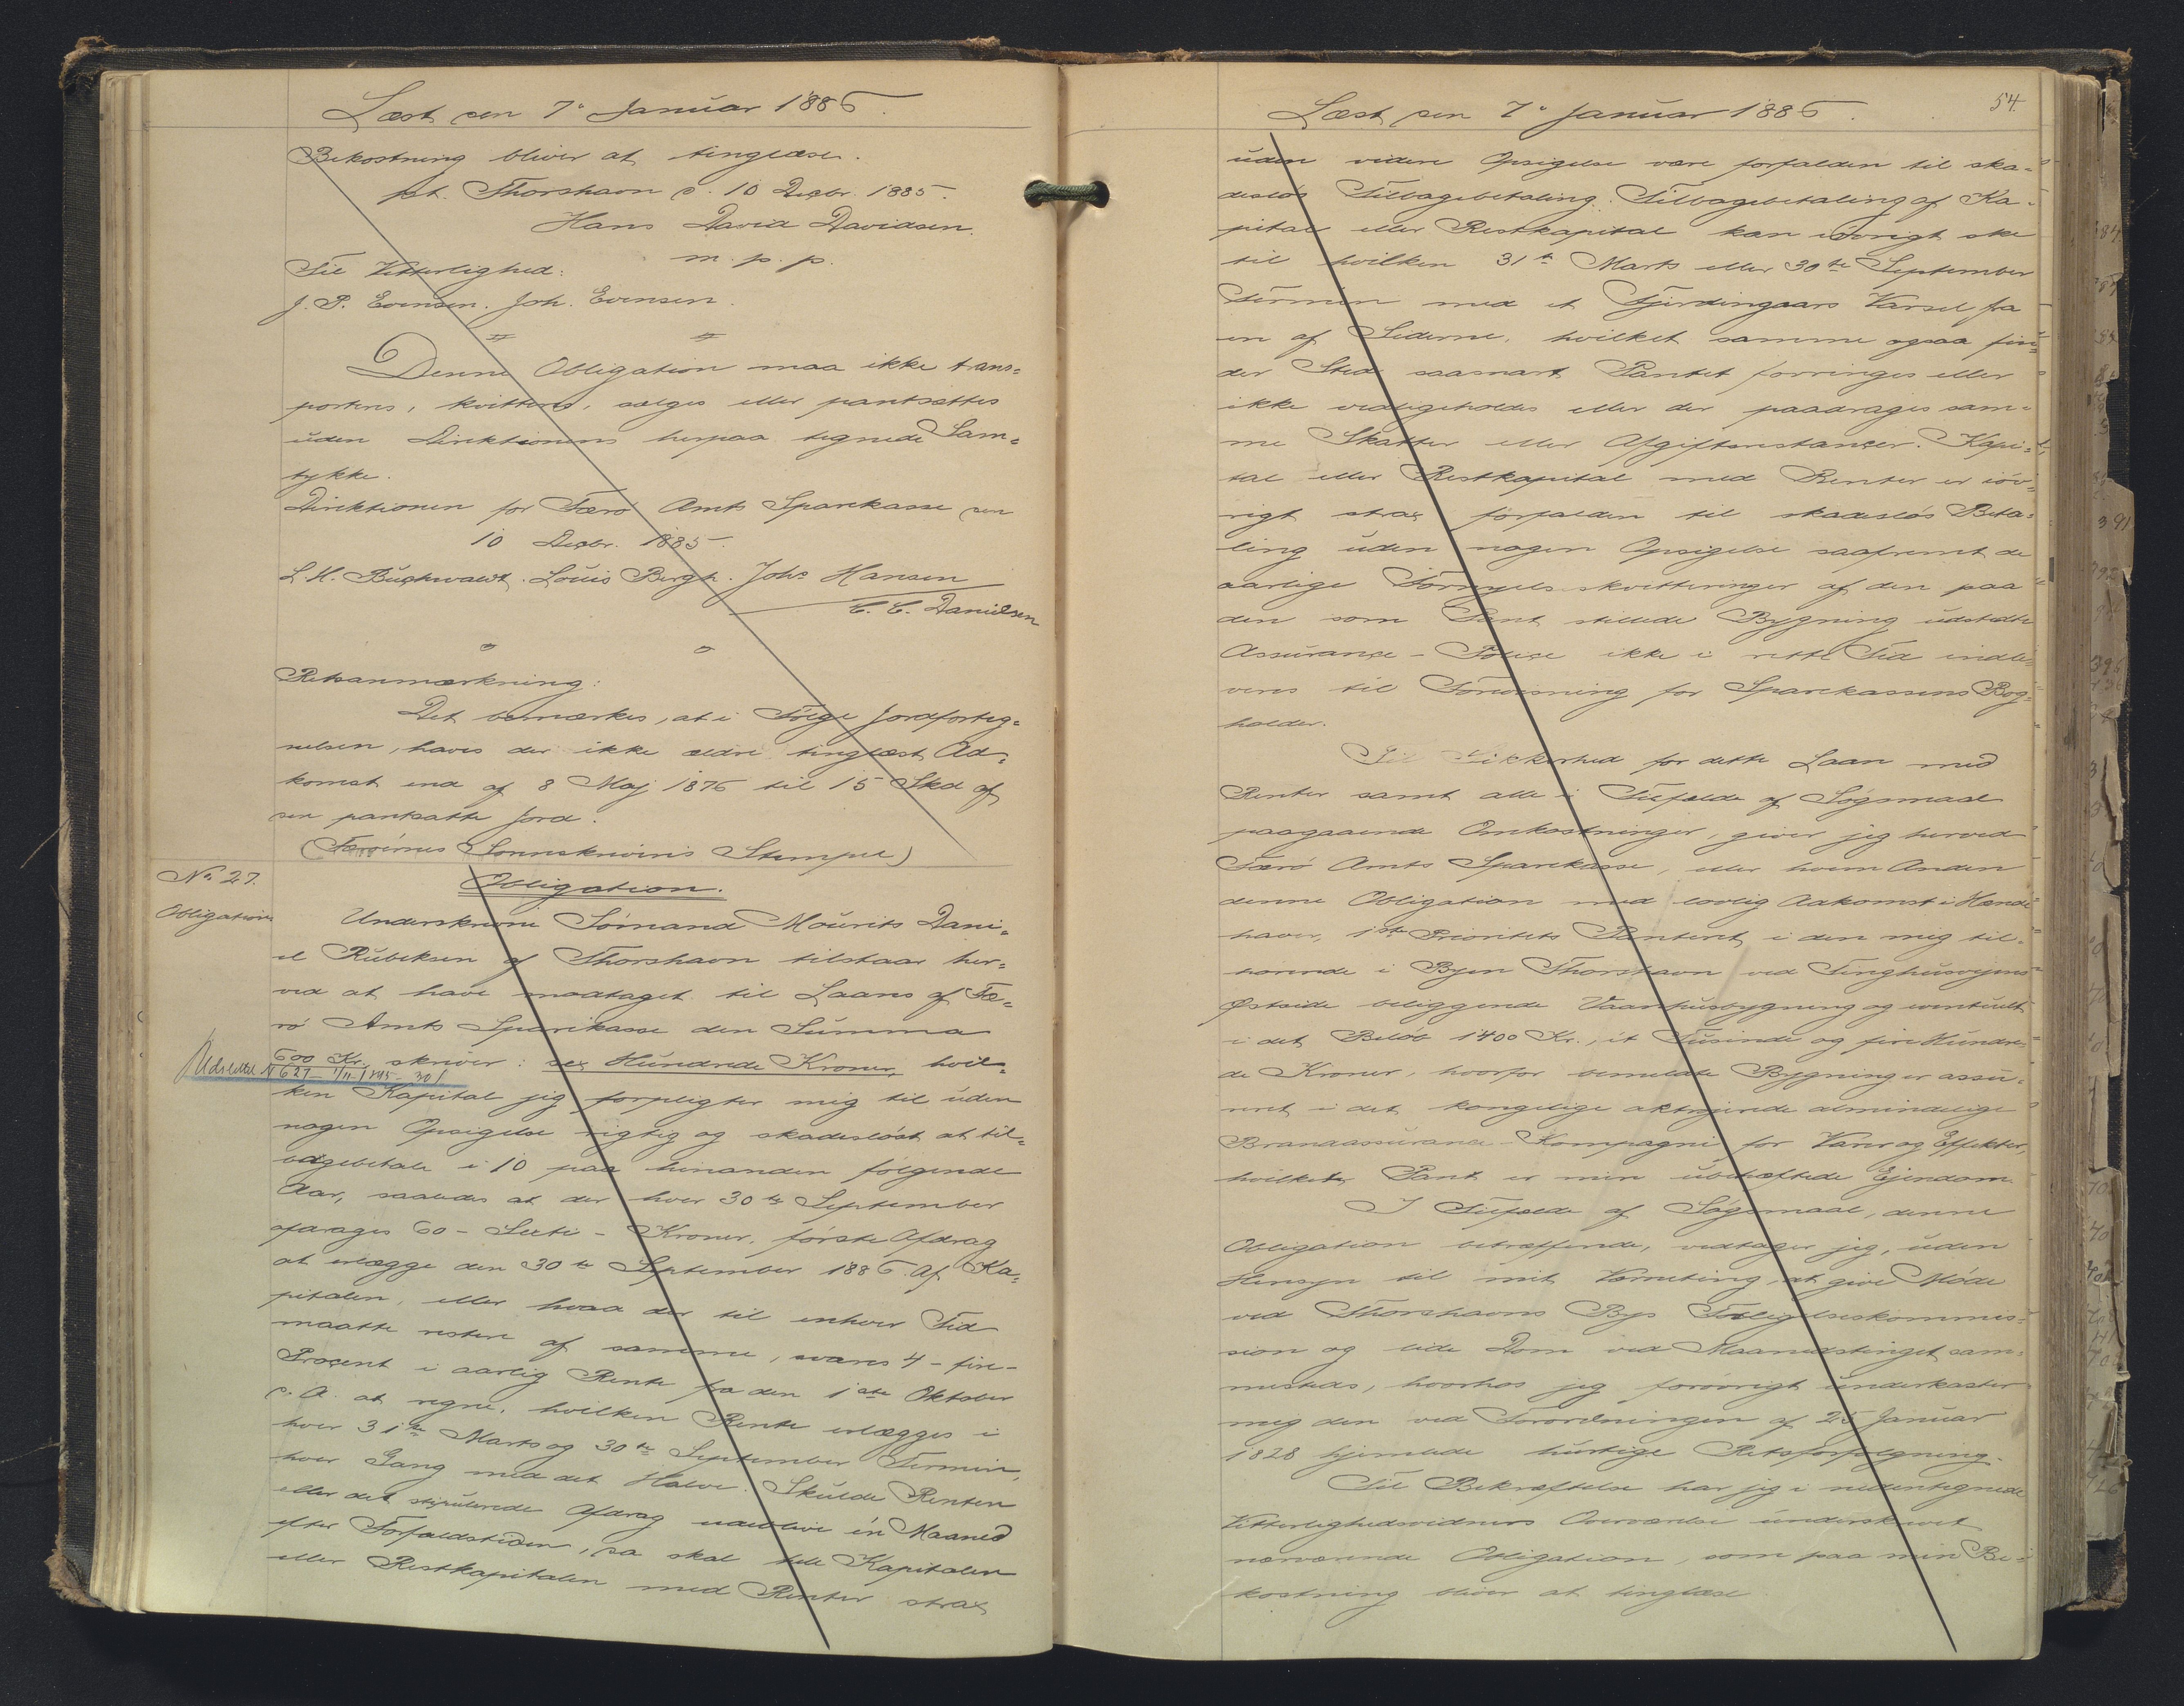 Læst den 7de Januar 1886.
Bekostning bliver at tinglæse.
pt. Thorshavn d. 10 Decbr. 1885.
Hans David Davidsen.
m. p. p.
Til Vitterlighed:
J. P. Evensen. Joh. Evensen.
Denne Obligation maa ikke trans=
porteres, kvitteres, sælges eller pantsættes
uden Direktionens herpaa tegnede Sam=
tykke.
Direktionen for Færø Amts Sparekasse den
10 Decbr. 1885.
L. H. Buchwaldt. Louis Bergh. Johs Hansen
C. C. Danielsen
Retsanmærkning:
Det bemærkes, at i Følge Jordforteg=
nelsen, haves der ikke ældre tinglæst Ad=
komst end af 8 Maj 1876 til 15 Skd af
den pantsatte Jord.
(Færøernes Sorenskriveris Stempel)
No 27.
Obligation
Obligation.
Underskrevne Sømand Mourits Dani=
el Rubeksen af Thorshavn tilstaar her=
ved at have modtaget til Laans af Fæ=
rø Amts Sparekasse den Summa
600 Kr. skriver: sex Hundrede Kroner, hvil=
Udslettet N 627 1/11-1895-30/.
ken Kapital jeg forpligter mig til uden
nogen Opsigelse rigtig og skadesløst at til=
bagebetale i 10 paa hinanden følgende
Aar, saaledes at der hver 30te September
afdrages 60 - Sexti - Kroner, første Afdrag
at erlægge den 30te September 1886. Af Ka=
pitalen, eller hvad der til enhver Tid
maatte restere af samme, svares 4 - fire -
Procent i aarlig Rente fra den 1ste Oktober
d. A. at regne, hvilken Rente erlægges i
hver 31te Marts og 30te September Termin,
hver Gang med det Halve. Skulde Renten
eller det stipulerede Afdrag udeblive én Maaned
efter Forfaldstiden, da skal hele Kapitalen
eller Restkapitalen med Renter strax
54.
Læst den 7de Januar 1886.
uden videre Opsigelse være forfalden til ska=
desløs Tilbagebetaling. Tilbagebetaling af Ka=
pital eller Restkapital kan iøvrigt ske
til hvilken 31te Marts eller 30te September
Termin med et Fjerdingaars Varsel fra
en af Siderne, hvilket samme ogsaa fin=
der Sted saasnart Pantet forringes eller
ikke vedligeholdes eller der paadrages sam=
me Skatter eller Afgiftsrestancer. Kapi=
tal eller Restkapital med Renter er iøv=
rigt strax forfalden til skadesløs Beta=
ling uden nogen Opsigelse saafremt de
aarlige Fornyelseskvitteringer af den paa
den som Pant stillede Bygning udstedte
Assurance-Police ikke i rette Tid indle=
veres til Forevisning for Sparekassens Bog=
holder.
Til Sikkerhed for dette Laan med
Renter samt alle i Tilfælde af Søgsmaal
paagaaende Omkostninger, giver jeg herved
Færø Amts Sparekasse, eller hvem Anden
denne Obligation med lovlig Adkomst i Hænde
haver, 1ste Prioritets Panteret i den mig til=
hørende i Byen Thorshavn ved Tinghusvejens
Østside beliggende Vaanhusbygning og eventuelt
i det Beløb 1400 Kr., et Tusinde og fire Hundre=
de Kroner, hvorfor bemeldte Bygning er assu=
reret i det kongelige oktrojerede almindelige
Brandassurance-Kompagni for Varer og Effekter,
hvilket Pant er min ubehæftede Ejendom.
I Tilfælde af Søgsmaal, denne
Obligation betræffende, vedtager jeg, uden
Hensyn til mit Værneting, at give Møde
ved Thorshavns Bys Forligelseskommis=
sion og lide Dom ved Maanedstinget sam=
mesteds, hvorhos jeg forøvrigt underkaster
mig den ved Forordningen af 25 Januar
1828 hjemlede hurtige Retsforfølgning.
Til Bekræftelse har jeg i nedentegnede
Vitterlighedsvidners Overværelse underskrevet
nærværende Obligation, som paa min Be=
kostning bliver at tinglæse